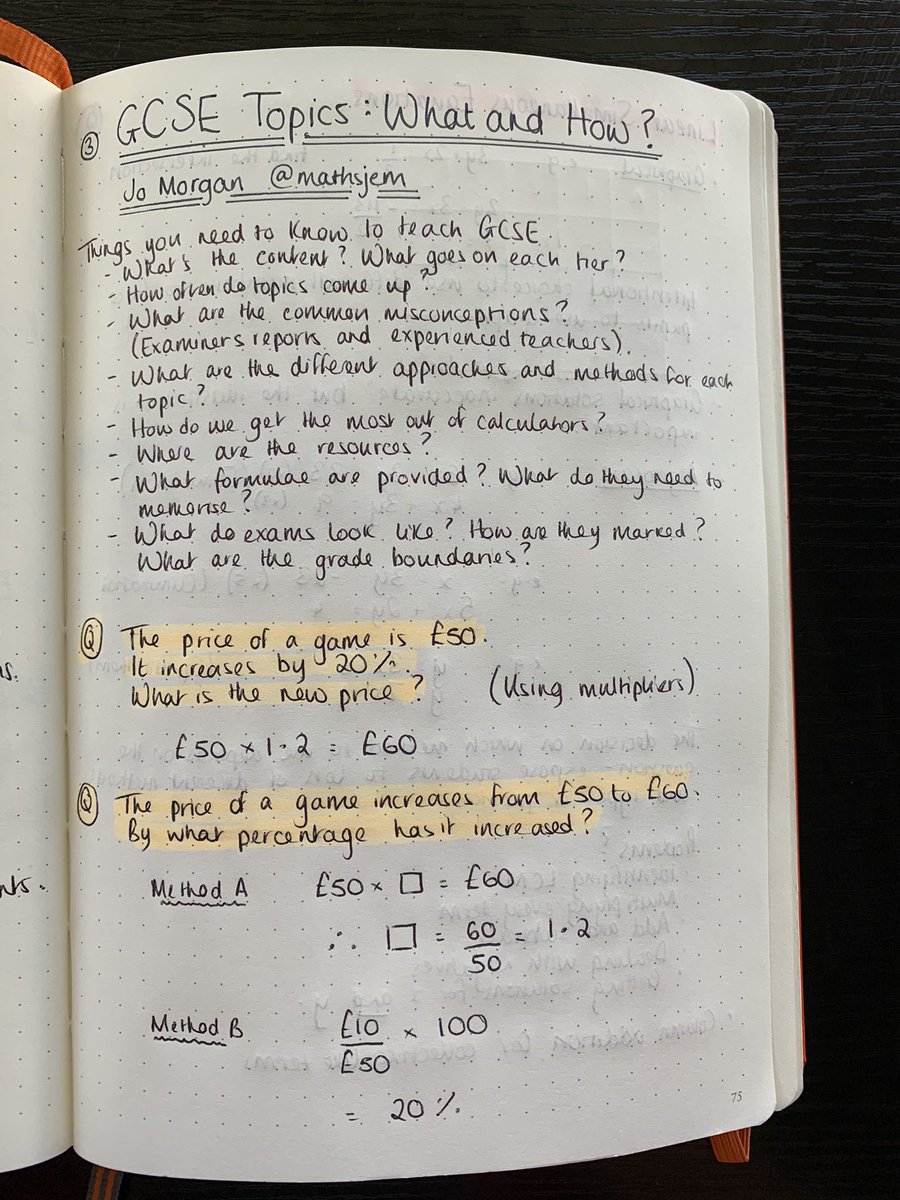 ③ GCSE Topics: What and How?
Jo Morgan @mathsjem
Things you need to know to teach GCSE.
- What's the content? What goes on each tier?
- How often do topics come up?
- What are the common misconceptions?
(Examiners reports and experienced teachers).
- What are the different approaches and methods for each
topic?
- How do we get the most out of calculators?
- Where are the resources?
- What formulae are provided? What do they need to
memorise?
- What do exams look like? How are they marked?
What are the grade boundaries?
Q The price of a game is £50.
It increases by 20%.
What is the new price? (Using multipliers)
£50 × 1·2 = £60
Q The price of a game increases from £50 to £60.
By what percentage has it increased?
Method A £50 × □ = £60
∴ □ = 60/50 = 1·2
Method B £10/£50 × 100
= 20%
75